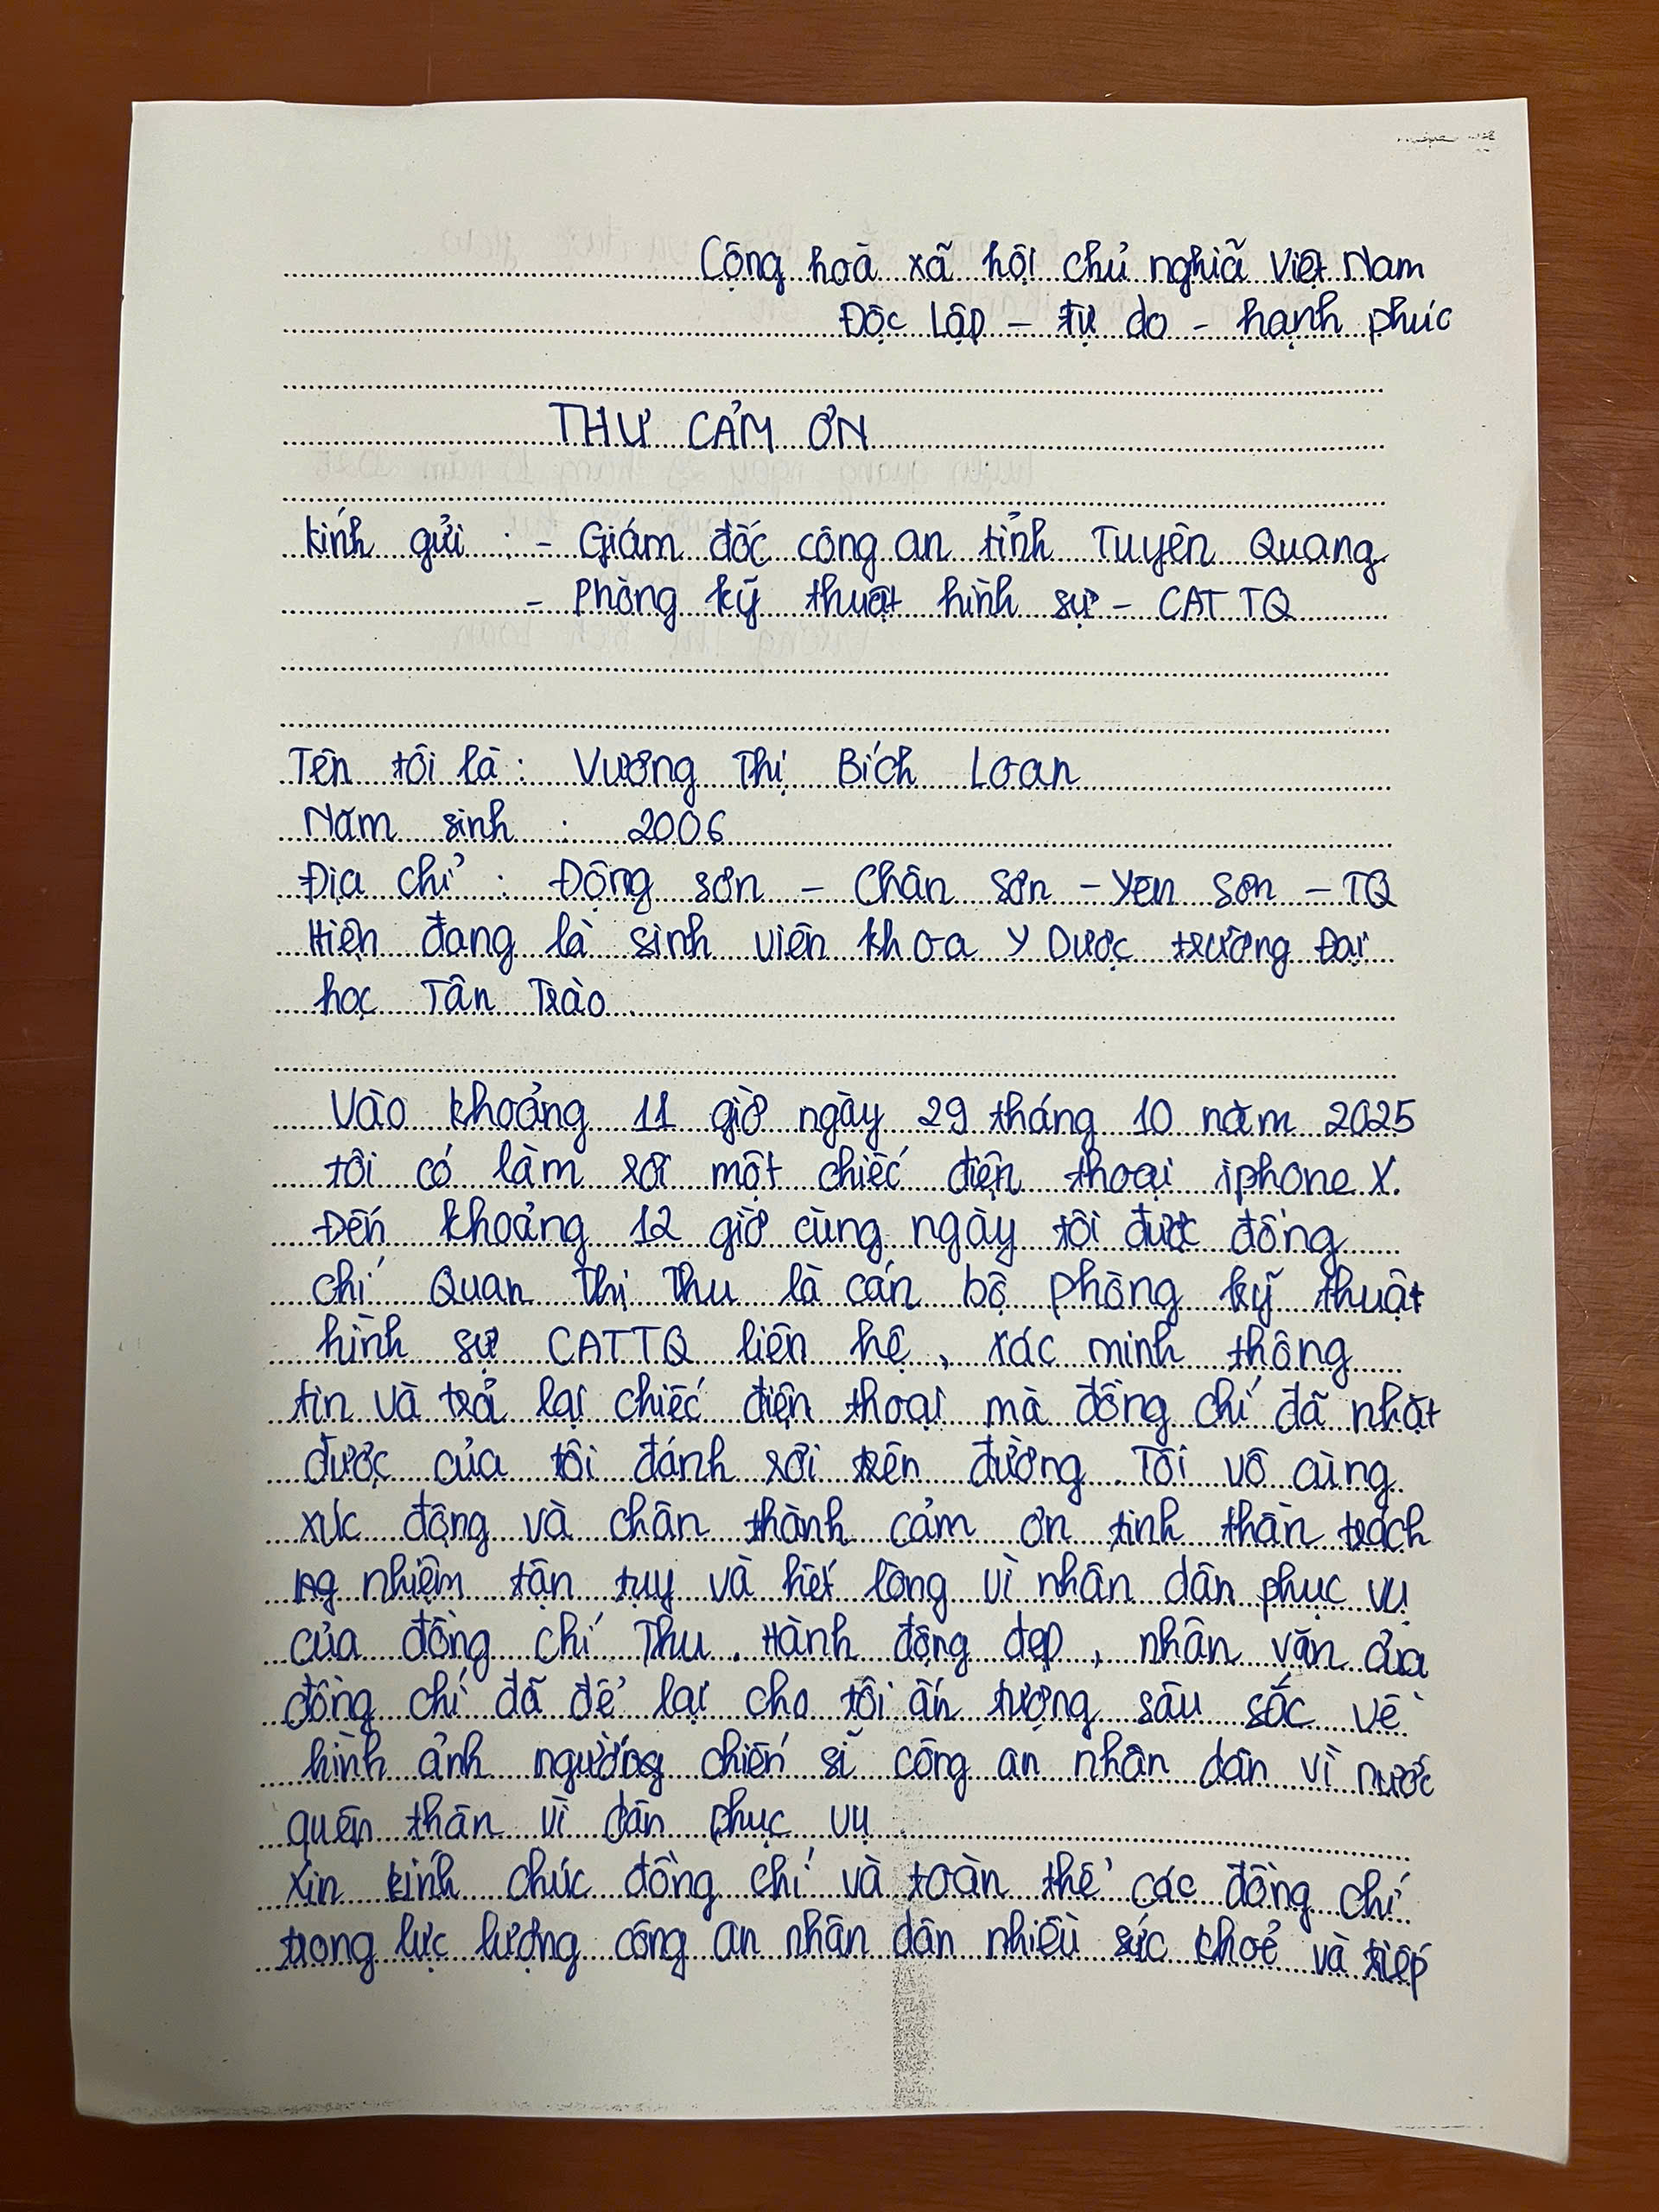 Cộng hoà xã hội chủ nghiã Việt Nam
Độc Lập - tự do - hạnh phúc
THƯ CẢM ƠN
kính gửi : - Giám đốc công an tỉnh Tuyên Quang
- Phòng kỹ thuật hình sự - CAT TQ
Tên tôi là : Vương Thị Bích Loan
Năm sinh : 2006
Địa chỉ : Động sơn - Chân Sơn - Yên Sơn - TQ
Hiện đang là sinh viên khoa Y Dược trường Đại
học Tân Trào
Vào khoảng 11 giờ ngày 29 tháng 10 năm 2025
tôi có làm rơi một chiếc điện thoại iphone X.
Đến khoảng 12 giờ cùng ngày tôi được đồng
chí Quan Thị Thu là cán bộ phòng kỹ thuật
hình sự CATTQ liên hệ, xác minh thông
tin và trả lại chiếc điện thoại mà đồng chí đã nhặt
được của tôi đánh rơi trên đường. Tôi vô cùng
xúc động và chân thành cảm ơn tinh thần trách
nhiệm tận tụy và hết lòng vì nhân dân phục vụ
của đồng chí Thu. Hành động đẹp, nhân văn của
đồng chí đã để lại cho tôi ấn tượng sâu sắc về
hình ảnh người chiến sĩ công an nhân dân vì nước
quên thân vì dân phục vụ
Xin kính chúc đồng chí và toàn thể các đồng chí
trong lực lượng công an nhân dân nhiều sức khoẻ và tiếp